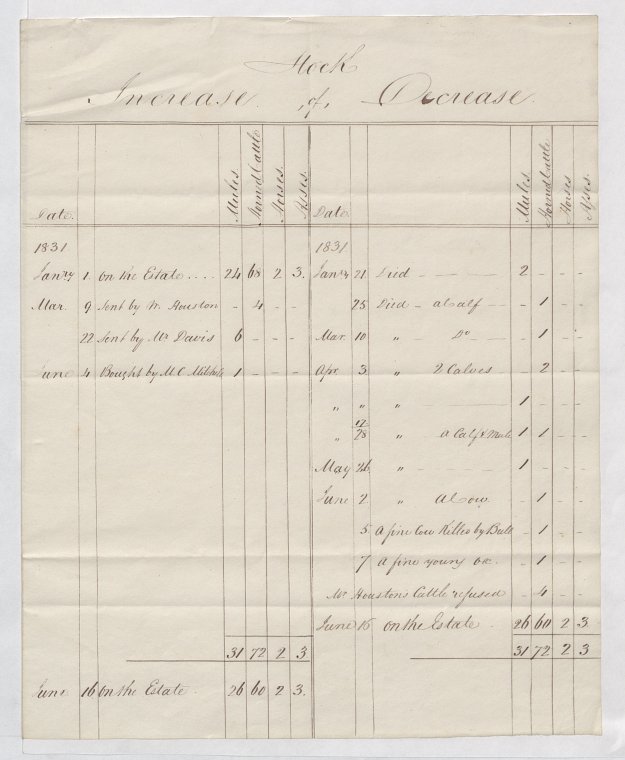 Stock
Increase of Decrease
Date Mules. Horned Cattle Horses. Asses. Date Mules. Horned Cattle Horses Asses.
1831 1831
Janry 1 On the Estate .... 24 68 2 3. Janry 21 Died - - - 2 - - -
Mar. 9 Sent by W. Houston - 4 - - 25 Died - a Calf - - 1 - -
22 Sent by Mr Davis 6 - - - Mar. 10 " - Do - - 1 - -
June 4 Bought by M. C. 1 - - - Apr 3 " 2 Calves - 2 - -
" " " 1 - - -
" 28 " a Calf & Mule 1 1 - -
May 26 " - - - 1 - - -
June 2 " a Cow - 1 - -
5 a fine Cow Killed by Bull - 1 - -
7 a fine young ox. - 1 - -
Mr Houstons Cattle refused - 4 - -
June 16 on the Estate. 26 60 2 3
31 72 2 3 31 72 2 3
June 16 On the Estate. 26 60 2 3.